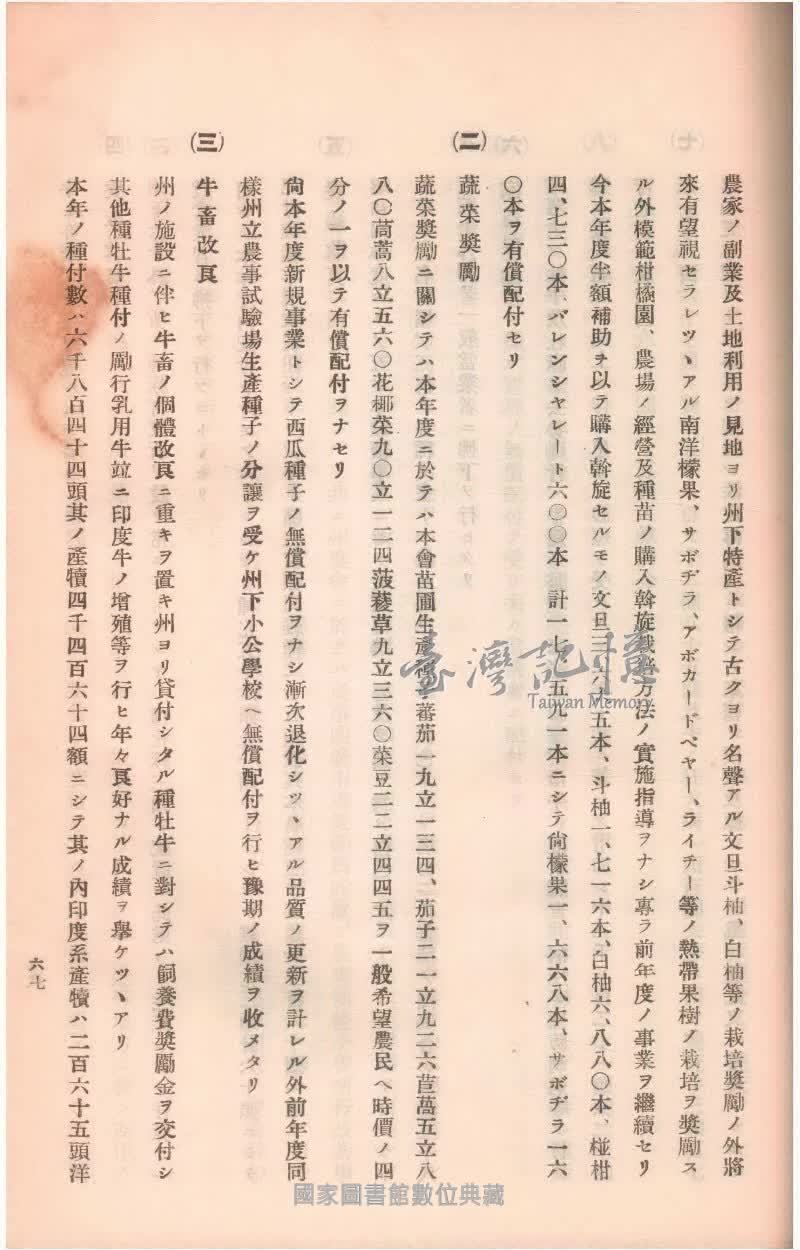 農家ノ副業及土地利用ノ見地ヨリ州下特産トシテ古クヨリ名聲アル文旦斗柚、白柚等ノ栽培奬勵ノ外將
來有望視セラレツヽアル南洋檬果、サボヂラ、アボカードペヤー、ライチー等ノ熱帶果樹ノ栽培ヲ奬勵ス
ル外模範柑橘園、農場ノ經營及種苗ノ購入斡旋栽培方法ノ實施指導ヲナシ專ラ前年度ノ事業ヲ繼續セリ
今本年度半額補助ヲ以テ購入斡旋セルモノ文旦三、六五本、斗柚一、七一六本、白柚六、八八〇本、椪柑
四、七三〇本、バレンシヤレート六〇〇本 計一七、五九一本ニシテ尙檬果一、六六八本、サボヂラ一六
〇本ヲ有償配付セリ
(二) 蔬菜奬勵
蔬菜奬勵ニ關シテハ本年度ニ於テハ本會苗圃生產種子蕃茄一九立一三四、茄子二一立九二六萵五立八
八〇茼蒿八立五六〇花椰菜九〇立一二四菠薐草九立三六〇菜豆二二立四四五ヲ一般希望農民ヘ時價ノ四
分ノ一ヲ以テ有償配付ヲナセリ
尙本年度新規事業トシテ西瓜種子ノ無償配付ヲナシ漸次退化シツヽアル品質ノ更新ヲ計レル外前年度同
樣州立農事試驗場生產種子ノ分讓ヲ受ケ州下小公學校ヘ無償配付ヲ行ヒ豫期ノ成績ヲ收メタリ
(三) 牛畜改良
州ノ施設ニ伴ヒ牛畜ノ個體改良ニ重キヲ置キ州ヨリ貸付シタル種牡牛ニ對シテハ飼養費奬勵金ヲ交付シ
其他種牡牛種付ノ勵行乳用牛竝ニ印度牛ノ增殖等ヲ行ヒ年々良好ナル成績ヲ擧ケツヽアリ
本年ノ種付數ハ六千八百四十四頭其ノ產犢四千四百六十四額ニシテ其ノ內印度系產犢ハ二百六十五頭洋
六七
臺灣記憶
Taiwan Memory
國家圖書館數位典藏